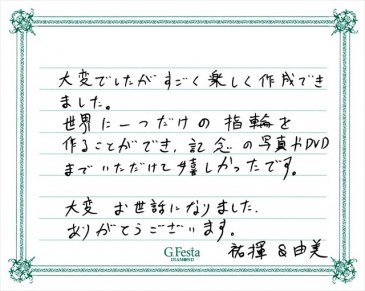 大変でしたがすごく楽しく作成でき
ました。
世界に一つだけの指輪を
作ることができ、記念の写真やDVD
までいただけて嬉しかったです。
大変お世話になりました。
ありがとうございます。
祐揮&由美
G.Festa
DIAMOND